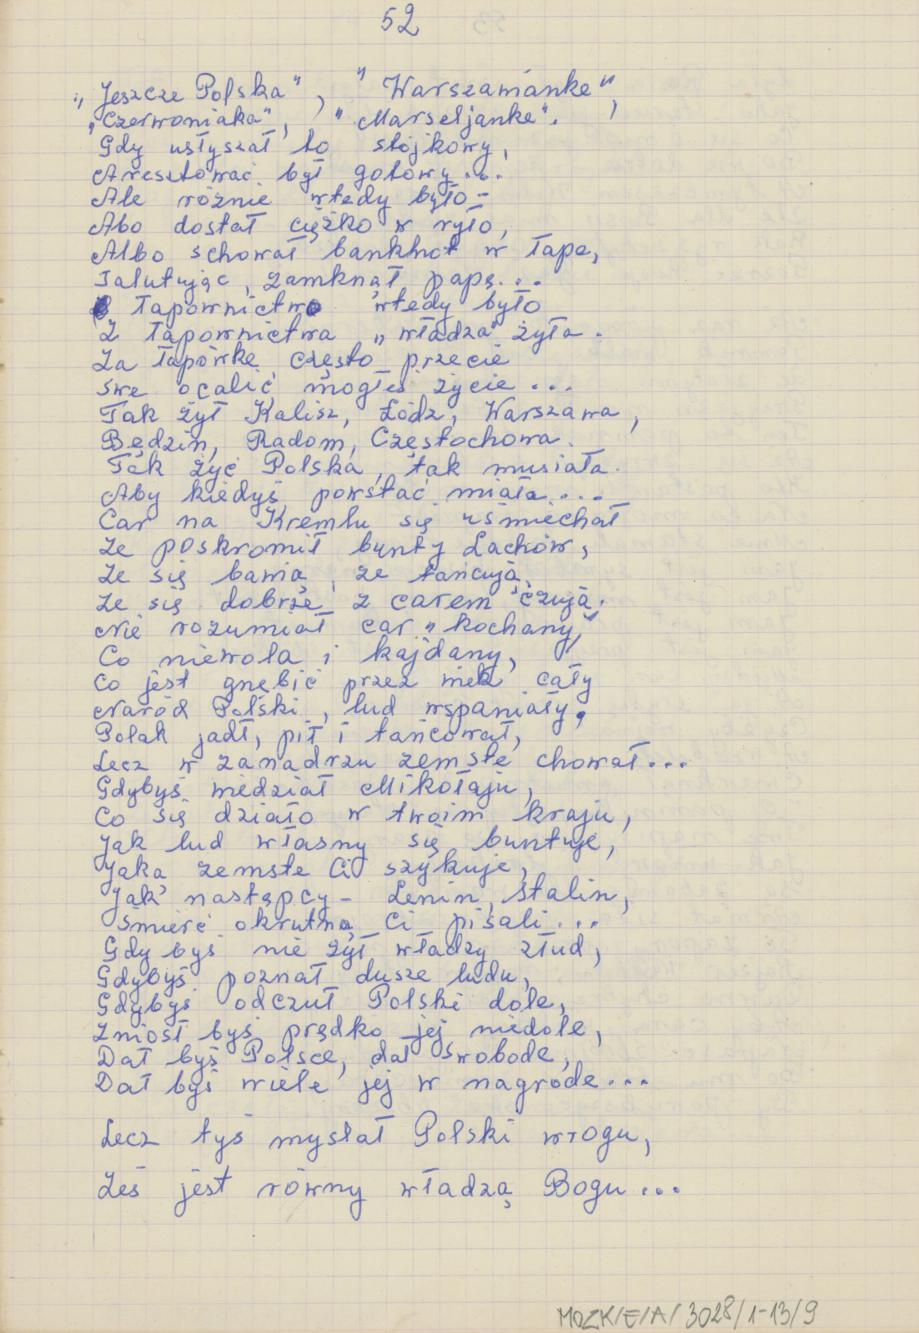 52
"Jeszcze Polska", "Warszawiankę",
"Czerwoniaka", "Marseljankę".
Gdy usłyszał to stójkowy,
Aresztować był gotowy...
Ale różnie wtedy było –
Abo dostał ciężko w ryło,
Albo schował banknot w łapę,
Salutując, zamknął papę...
Łapownictwo wtedy było
Z łapownictwa „władza" żyła.
Za łapówkę często przecie
Swe ocalić mogłeś życie...
Tak żył Kalisz, Łódz, Warszawa,
Będzin, Radom, Częstochowa.
Tak żyć Polska, tak musiała.
Aby kiedyś powstać miała...
Car na Kremlu się uśmiechał
Że poskromił bunty Lachów,
Że się bawią, że tańcują,
Że się dobrze z carem czują.
Nie rozumiał car „kochany,"
Co niewola i kajdany,
Co jest gnębić przez wiek cały
Naród Polski, lud wspaniały,
Polak jadł, pił i tańcował,
Lecz w zanadrzu zemstę chował...
Gdybyś wiedział Mikołaju,
Co się działo w twoim kraju,
Jak lud własny się buntuje,
Jaką zemstę Ci szykuje,
Jak następcy – Lenin, Stalin,
Śmierć okrutną Ci pisali...
Gdy byś nie żył władzy złud,
Gdybyś poznał duszę ludu,
Gdybyś odczuł Polski dolę,
Zniósł byś prądko jej niedolę,
Dał byś Polsce, dał swobodę,
Dał byś wiele jej w nagrodę...
Lecz tyś myslał Polski wrogu,
Żeś jest równy władzą Bogu...
MOZK/E/A/3028/1-13/9